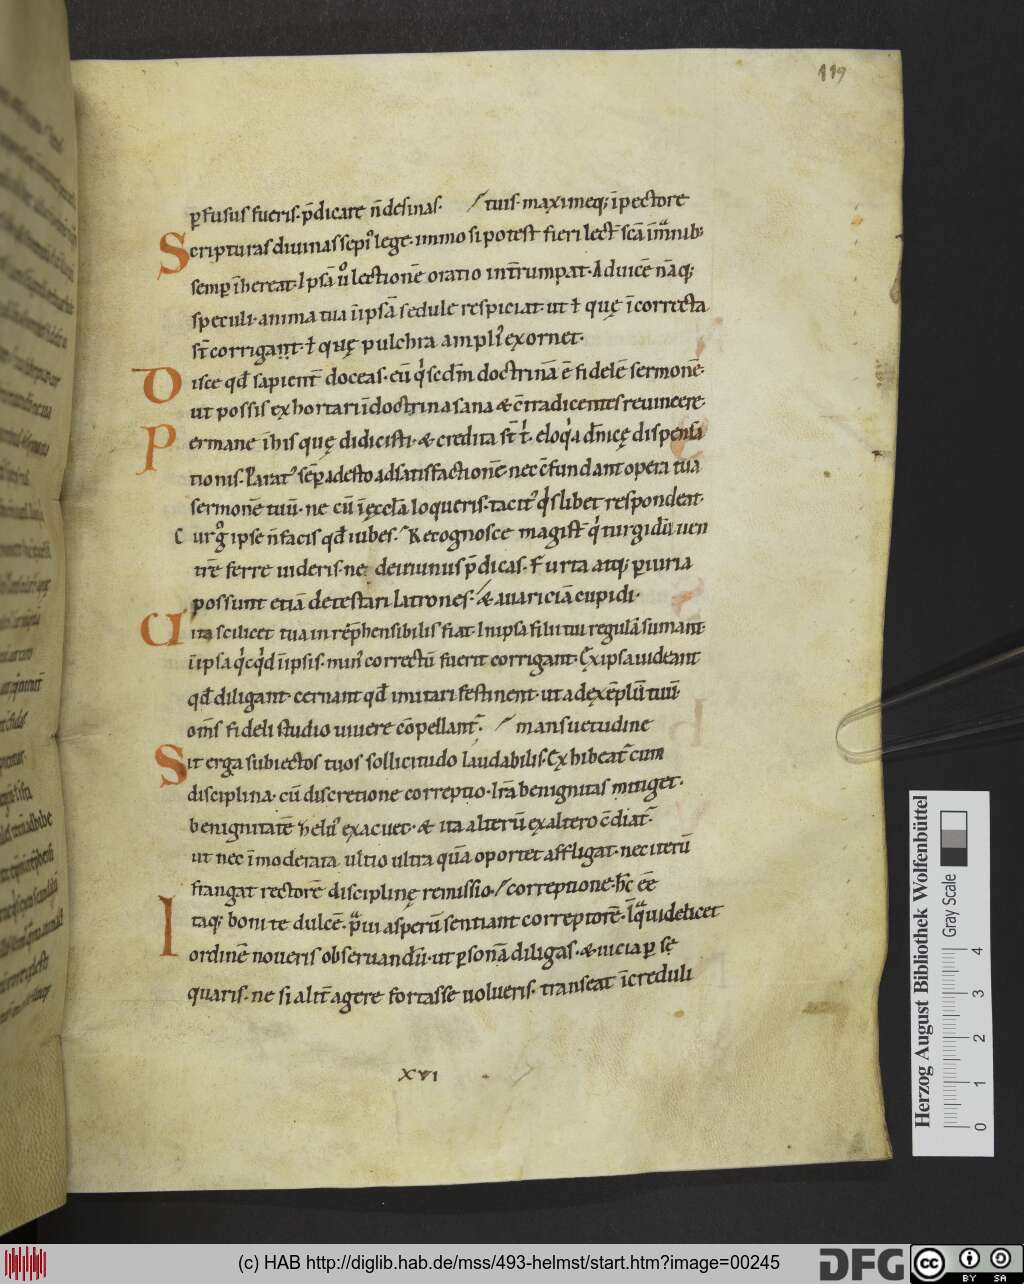 119
ꝑfusus fueris· p̄dicare n̄ desinas· / tuis· maximeq; ī pectore
Scripturas diuinas sepi᾽ lege· immo si potest fieri lect̄ sc̄a ī manib;
semꝑ ī hereat· Ipsā uͦ lectionē oratio int̄rumpat· Ad uicē nāq;
speculi· anima tua ī ipsā sedule respiciat· ut ł quę ī correcta
st̄ corrigant· ł quę pulchra ampli᾽ exornet·
Disce qđ sapient̄ doceas· eū qͥ scd̄m doctrinā ē fidelē sermonē·
ut possis exhortari ī doctrina sana & c̄tradicentes reuincere·
Permane ī his quę didicisti· & credita st̄ tͥ· eloqͥa dn̄icę dispensa
tionis· Parat᾽ sēꝑ adesto ad satisfactionē nec c̄fundant opera tua
sermonē tuū· ne cū ī ęcclā loqueris· tacit᾽ qͥslibet respondeat·
Cur gͦ ipse n̄ facis qđ iubes· / Recognosce magist̄ qͥ turgidū uen
trē ferre uideris· ne de ieiunus p̄dicas· Furta atq; ꝑiuria
possunt etiā detestari latrones· / & auariciā cupidi·
Uita scilicet tua inrep̄hensibilis fiat· In ipsa filii tui regulā sumant·
ī ipsa qͥcqͥd ī ipsis· min᾽ correctū fuerit corrigant· Ex ipsa uideant
qđ diligant· cernant qđ imitari festinent· ut ad exēplū tuū
om̄s fideli studio uiuere cōpellant᷑· / mansuetudine
Sit erga subiectos tuos sollicitudo laudabilis· Exhibeat᷑ cum
disciplina· cū discretione correptio· Irā benignitas mitiget·
benignitatē zelus exacuet· & ita alterū ex altero c̄diat᷑·
ut nec īmoderata ultio ultra quā oportet affligat· nec iterū
frangat rectorē disciplinę remissio· / correptione· h̄c eē
Itaq; boni te dulcē· pͣui asperū sentiant correptorē· Iqͣ uidelicet
ordinē noueris obseruandū· ut ꝑsonā diligas· & uicia ꝑ sę
quaris· ne si alit̄ agere fortasse uolueris· transeat ī creduli
XVI
Herzog August Bibliothek Wolfenbüttel
Gray Scale
0 1 2 3 4
(c) HAB http://diglib.hab.de/mss/493-helmst/start.htm?image=00245
DFG
cc BY SA